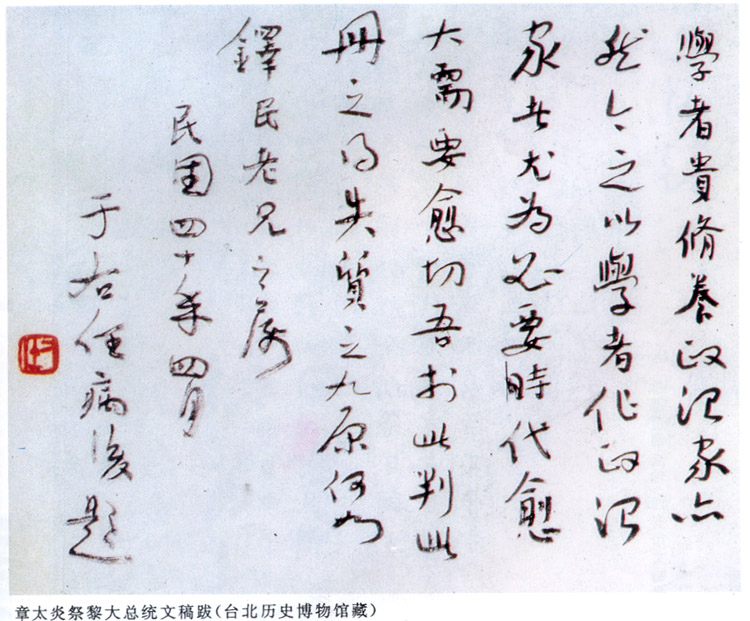 學者貴脩養政治家亦
然今之以學者作政治
家者尤為必要時代愈
大需要愈切吾於此判此
冊之得失質之九原何如
鐸民老兄之屬
民國四十年四月
于右任病後題
章太炎祭黎大总统文稿跋(台北历史博物馆藏)